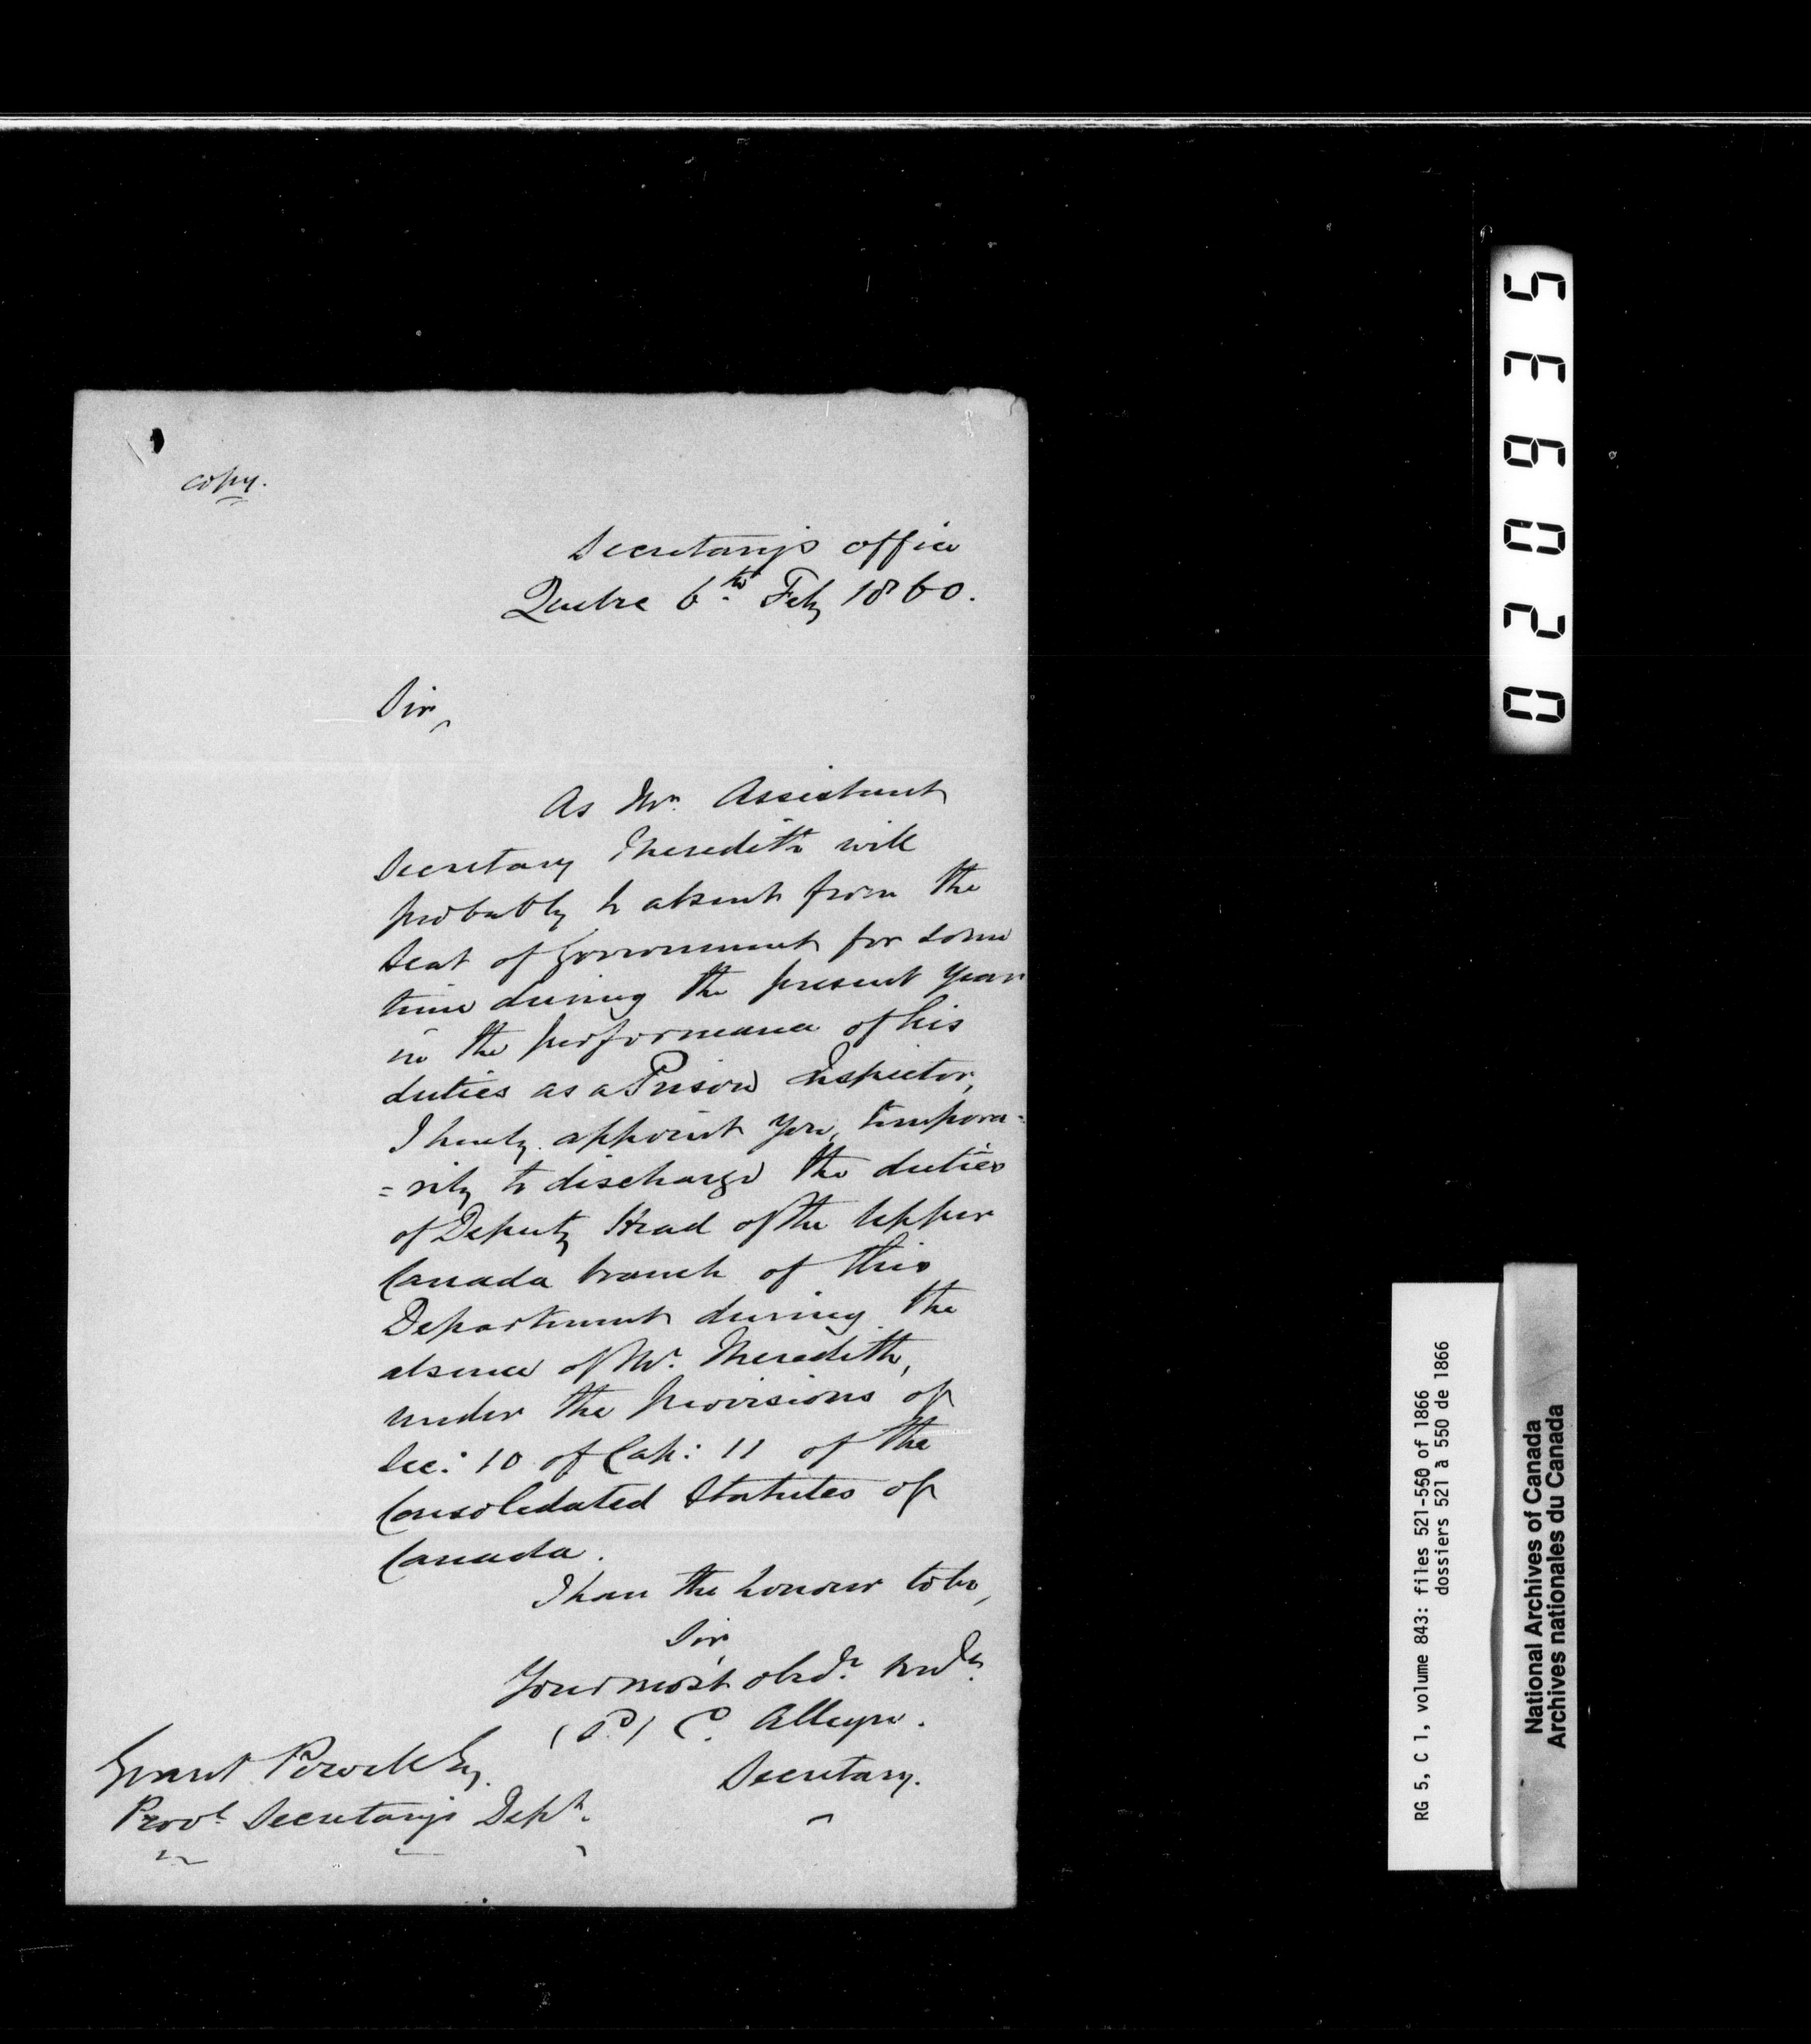 copy.
Secretary's office
Quebec 6th Feby 1860.
Sir,
As Mr. Assistant
Secretary Meredith will
probably be absent from the
Seat of Government for some
time during the present year
in the performance of his
duties as a Prison Inspector,
I hereby appoint you, tempora-
=rily to discharge the duties
of Deputy Head of the Upper
Canada branch of this
Department during the
absence of Mr. Meredith,
under the provisions of
Sec: 10 of Cap: 11 of the
Consolidated Statutes of
Canada.
I have the honour to be,
Sir,
Your most obedt. servt.
(S.) C. Alleyn.
Secretary.
Grant Powell Esq.
Provl. Secretary's Dept.
020635
RG 5, C 1, volume 843: files 521-550 of 1866
dossiers 521 à 550 de 1866
National Archives of Canada
Archives nationales du Canada